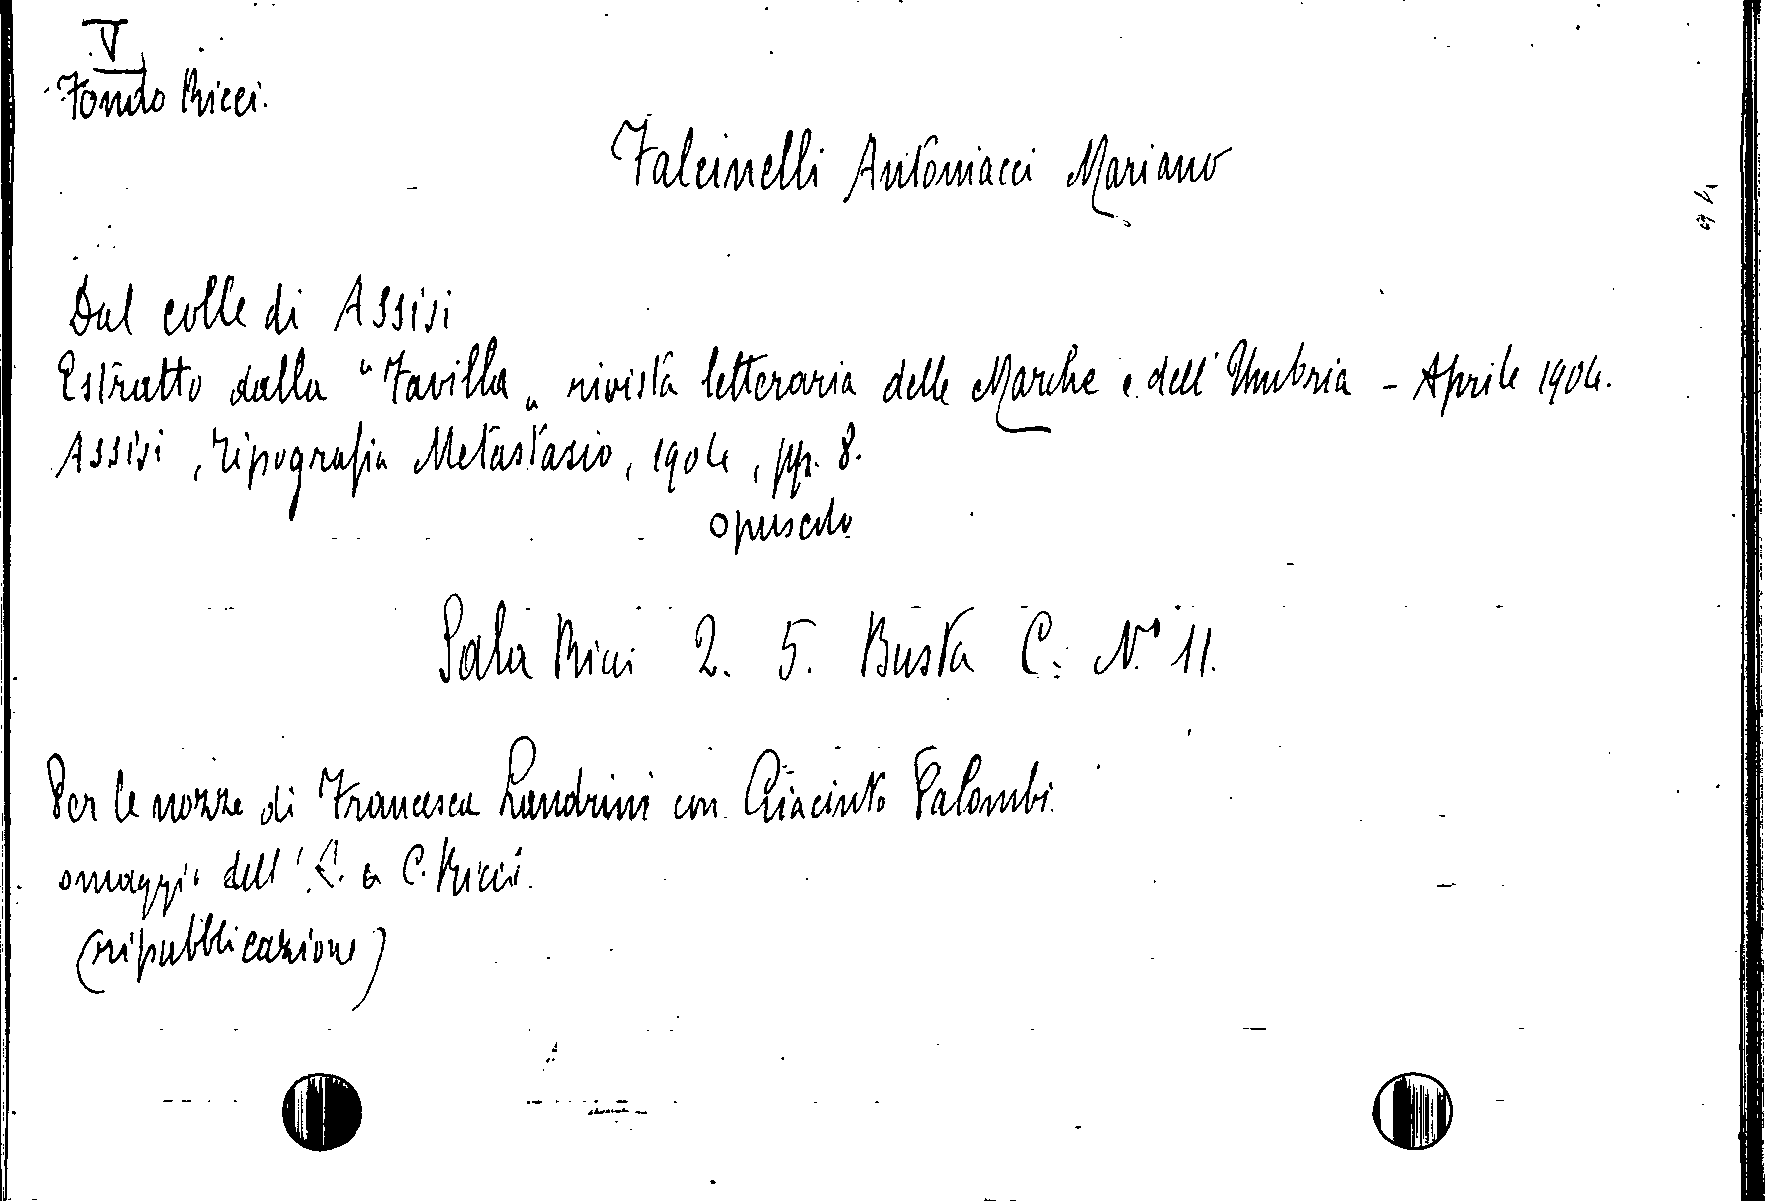 V
Fondo Ricci.
Falcinelli Antoniacci Mariano
Dal colle di Assisi
Estratto dalla "Favilla" rivista letteraria delle Marche e dell'Umbria - Aprile 1904.
Assisi, Tipografia Metastasio, 1904, pp. 8.
opuscolo
Sala Ricci 2. 5. Busta C. N° 11.
Per le nozze di Francesca Landrini con Giacinto Palombi.
omaggio dell'A. a C. Ricci.
(ripubblicazione)